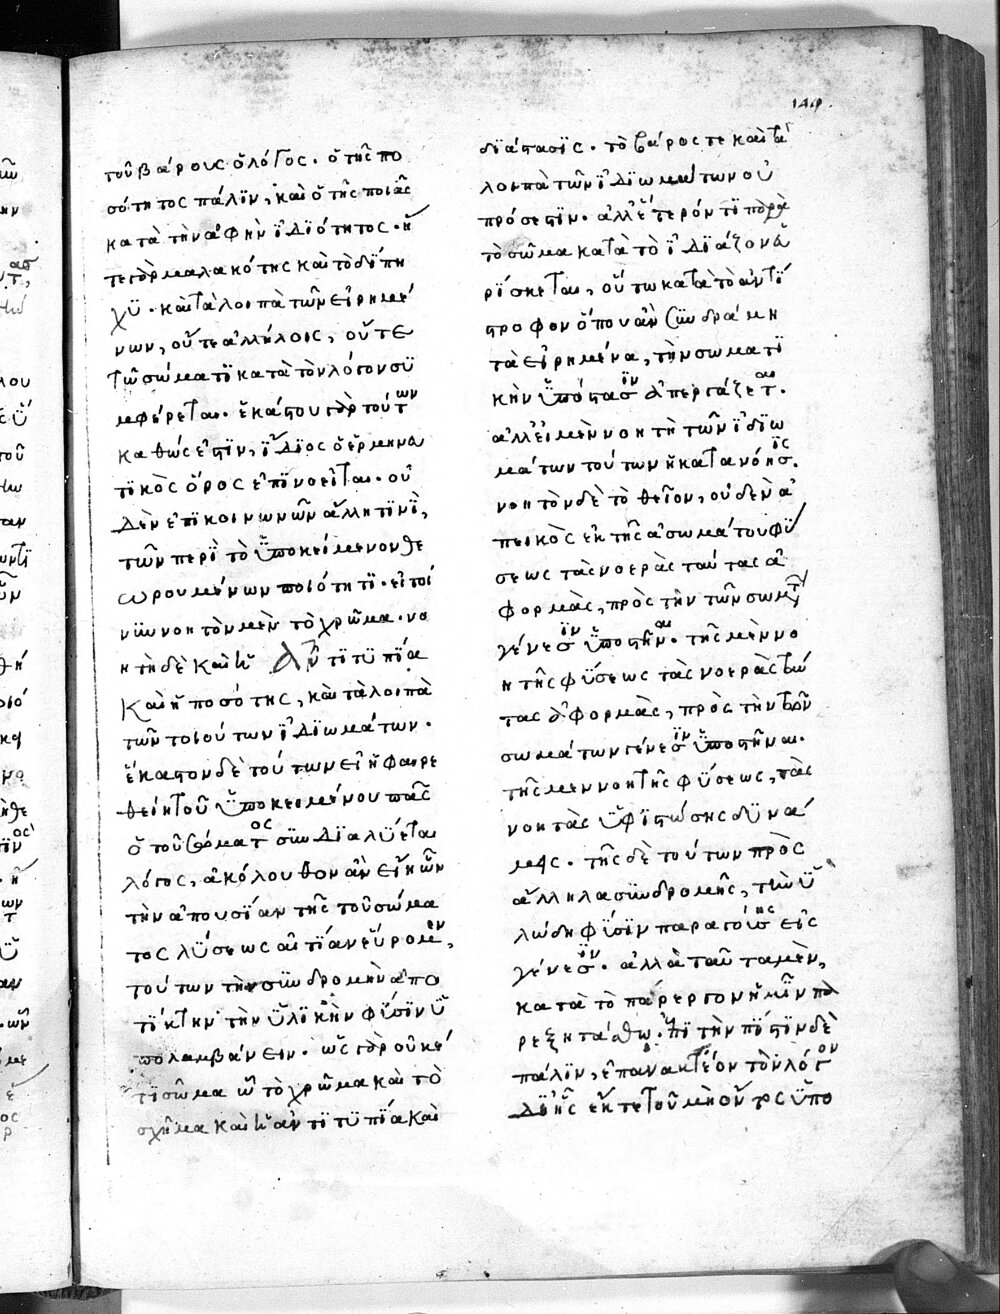 149.
τοῦ βάρους ὁ λόγος. ὁ τῆς πο
σότητος πάλϊν, καὶ ὁ τῆς ποιᾶς
κατὰ τὴν ἀφὴν ἰδιότητος. ἥ
τε γὰρ μαλακότης καὶ τὸ δίπη
χϋ. καὶ τὰ λοιπὰ τῶν εἰρημέ
νων, οὔτε ἀλλήλοις, οὔτε
τῶ σώματι κατὰ τὸν λόγον συ
μφέρεται. ἑκάστου γὰρ τούτων
καθώς ἐστιν, ἴδιος ὁ ἑρμηνευ
τικὸς ὅρος ἐπινοεῖται. οὐ
δὲν ἐπικοινωνῶν ἄλλη τινὶ,
τῶν περὶ τὸ ὑποκείμενον θε
ωρουμένων ποιότητι. εἰ τοί
νυν νοητὸν μὲν τὸ χρῶμα. νο
ητὴ δὲ καὶ ἡ ἀντιτυπία
καὶ ἡ ποσότης, καὶ τὰ λοιπὰ
τῶν τοιούτων ἰδιωμάτων.
ἕκαστον δὲ τούτων εἰ ὑφαιρε
θείη τοῦ ὑποκειμένου πᾶς
ὁ τοῦ σώματος συνδιαλύεται
λόγος, ἀκόλουθον ἂν εἴη ὧν
τὴν ἀπουσίαν τῆς τοῦ σώμα
τος λύσεως αἰτίαν εὕρομεν,
τούτων τὴν συνδρομὴν ἀπο
τίκτην τὴν ὑλικὴν φύσιν ὑ
πολαμβάνειν. ὡς γὰρ οὐκ ἔ
στι σῶμα ὧ τὸ χρῶμα καὶ τὸ
σχῆμα καὶ ἡ ἀντιτυπία καὶ
διάστασις. τὸ βάρος τε καὶ τὰ
λοιπὰ τῶν ἰδιωμάτων οὐ
πρόσεστιν. ἀλλ' ἕτερόν τι παρὰ
τὸ σῶμα κατὰ τὸ ἰδιάζον εὑ
ρίσκεται, οὕτω κατὰ τὸ ἀντί
στροφον ὅπου ἂν συνδράμη
τὰ εἰρημένα, τὴν σωματι
κὴν ὑπόστασιν ἀπεργάζεται.
ἀλλ' εἰ μὲν νοητὴ τῶν ἰδιω
μάτων τούτων ἡ κατανόησις.
νοητὸν δὲ τὸ θεῖον, οὐδὲν ἀ
πεικὸς ἐκ τῆς ἀσωμάτου φύ
σεως τὰς νοερὰς ταύτας ἀ
φορμὰς, πρὸς τὴν τῶν σωμάτων
γένεσιν ὑποστῆναι. τῆς μὲν νο
ητῆς φύσεως τὰς νοερὰς ταύ
τας ἀφορμὰς, πρὸς τὴν τῶν
σωμάτων γένεσιν ὑποστῆναι.
τῆς μὲν νοητῆς φύσεως, τὰς
νοητὰς ὑφιστώσης δυνά
μεις. τῆς δὲ τούτων πρὸς
ἄλληλα συνδρομῆς, τὴν ὑ
λώδη φύσιν παραγούσης εἰς
γένεσιν. ἀλλὰ ταῦτα μὲν,
κατὰ τὸ πάρεργον ἡμῖν πα
ρεξητάσθω. ἐπὶ τὴν πίστιν δὲ
πάλιν, ἐπανακτέον τὸν λόγον
δι' ἧς ἔκ τε τοῦ μὴ ὄντος ὑπο